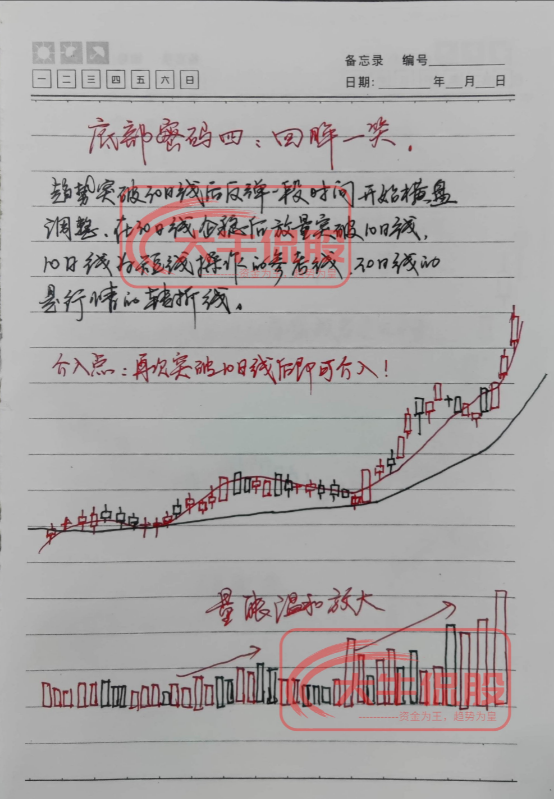 备忘录 编号
一 二 三 四 五 六 日
日期: 年 月 日
底部密码四:回眸一笑.
趋势突破30日线后反弹一段时间开始横盘
调整、在30日线企稳后放量突破10日线,
10日线为短线操作的参考线.30日线的
是行情的转折线.
介入点:再次突破10日线后即可介入!
量能温和放大
大牛侃股
资金为王,趋势为皇
大牛侃股
----------资金为王,趋势为皇